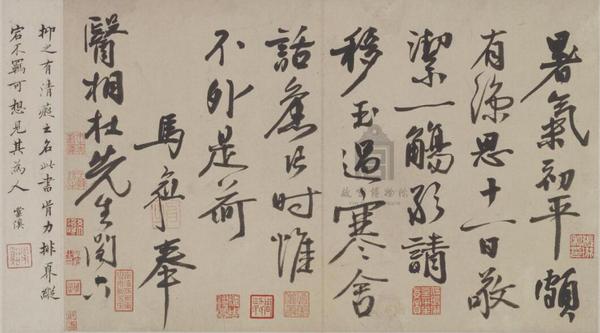 暑氣初平頗
有涼思十一日敬
潔一觴敢請
移玉過寒舍
話舊片时惟
不外是荷
馬愈奉
醫相杜先生閣下
抑之有清癡之名此書骨力排奡縱
宕不羈可想見其為人
故宮博物院